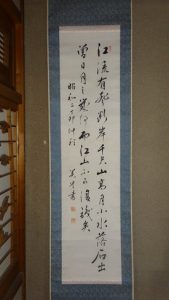 江流有聲斷岸千尺山高月小水落石出
曾日月之幾何而江山不可復識矣
昭和 卯仲 書